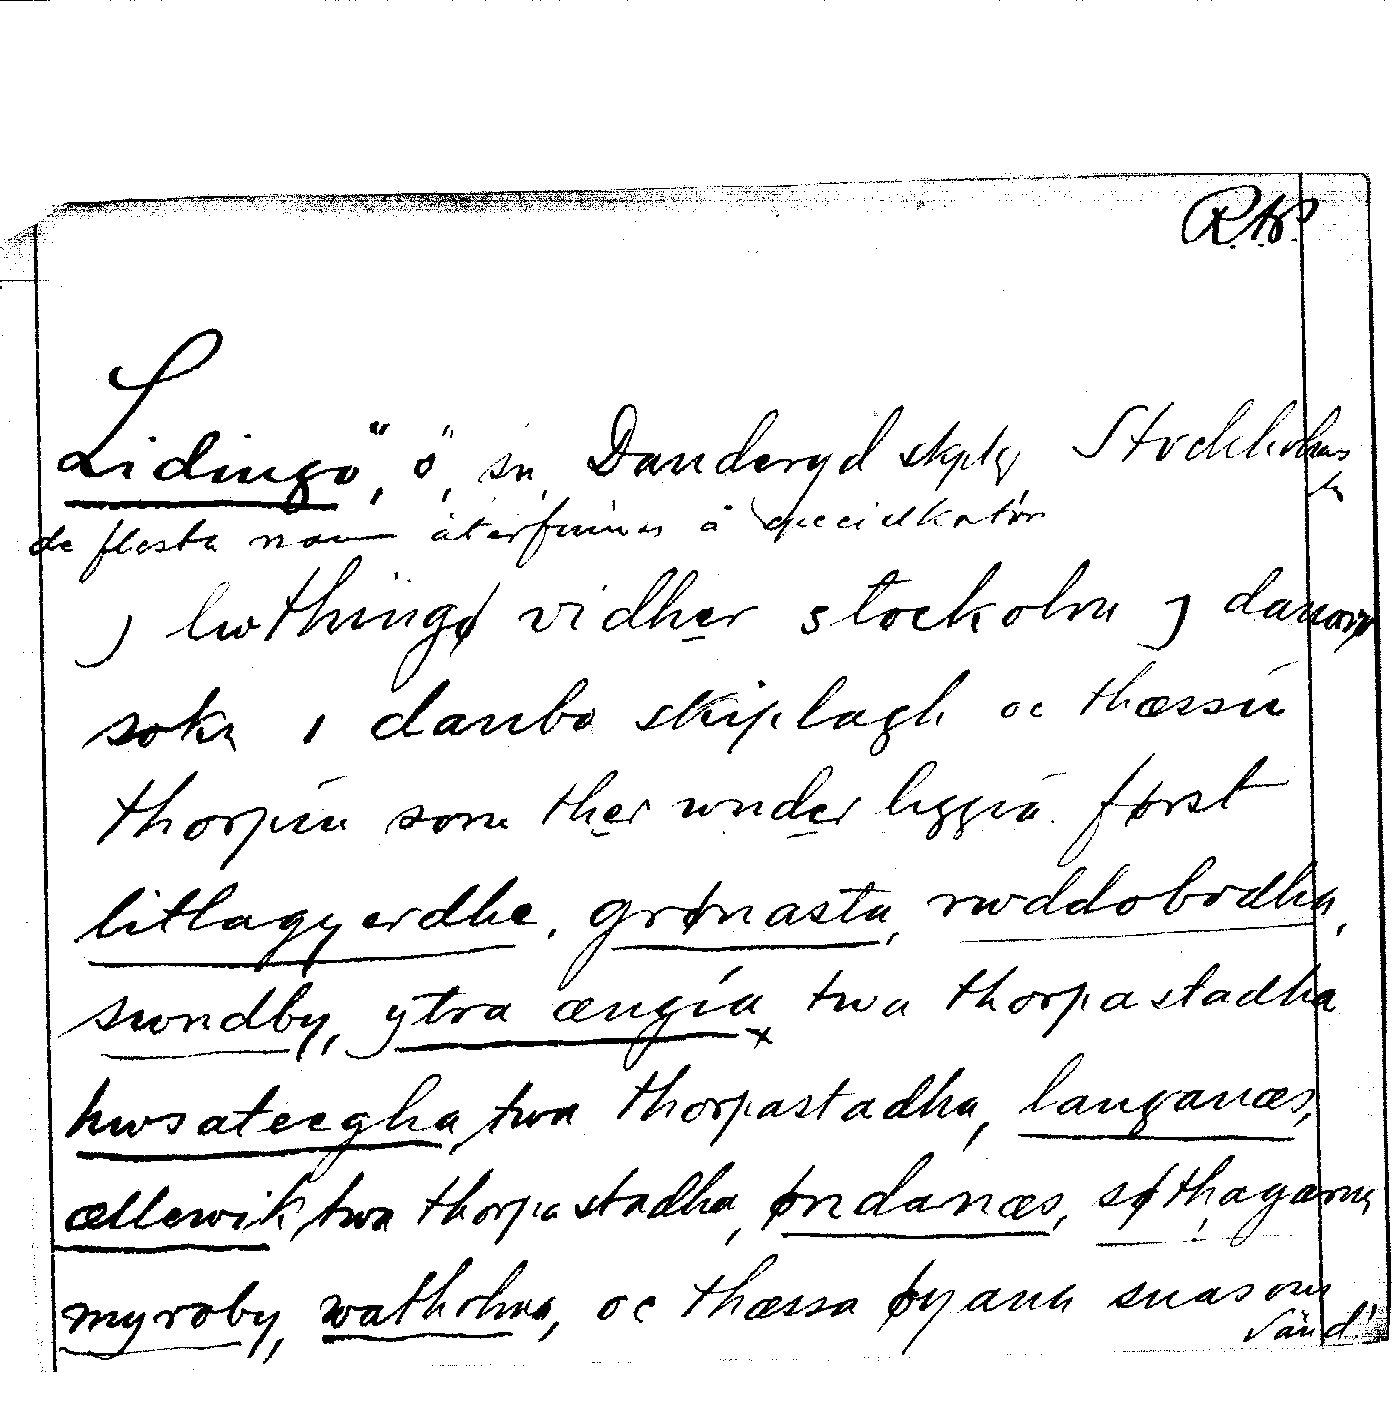 Lidingö, ö, sn, Danderyd skplg Stockholms
de flesta namn återfinnes å
J liwthingø vidher stockolm J
sokn i danbo skiplagh oc thæssin
thorpin som ther wnder liggia først
litlagyerdhe, grønasta, rwddobodha,
swndby, ytra ængia twa thorpastadha
hwsateegha, twa thorpastadha, langanæs,
ællewik, twa thorpastadha, øndanæs, søthagarna
myroby, watholma, oc thæssa øyana suasom
vänd!